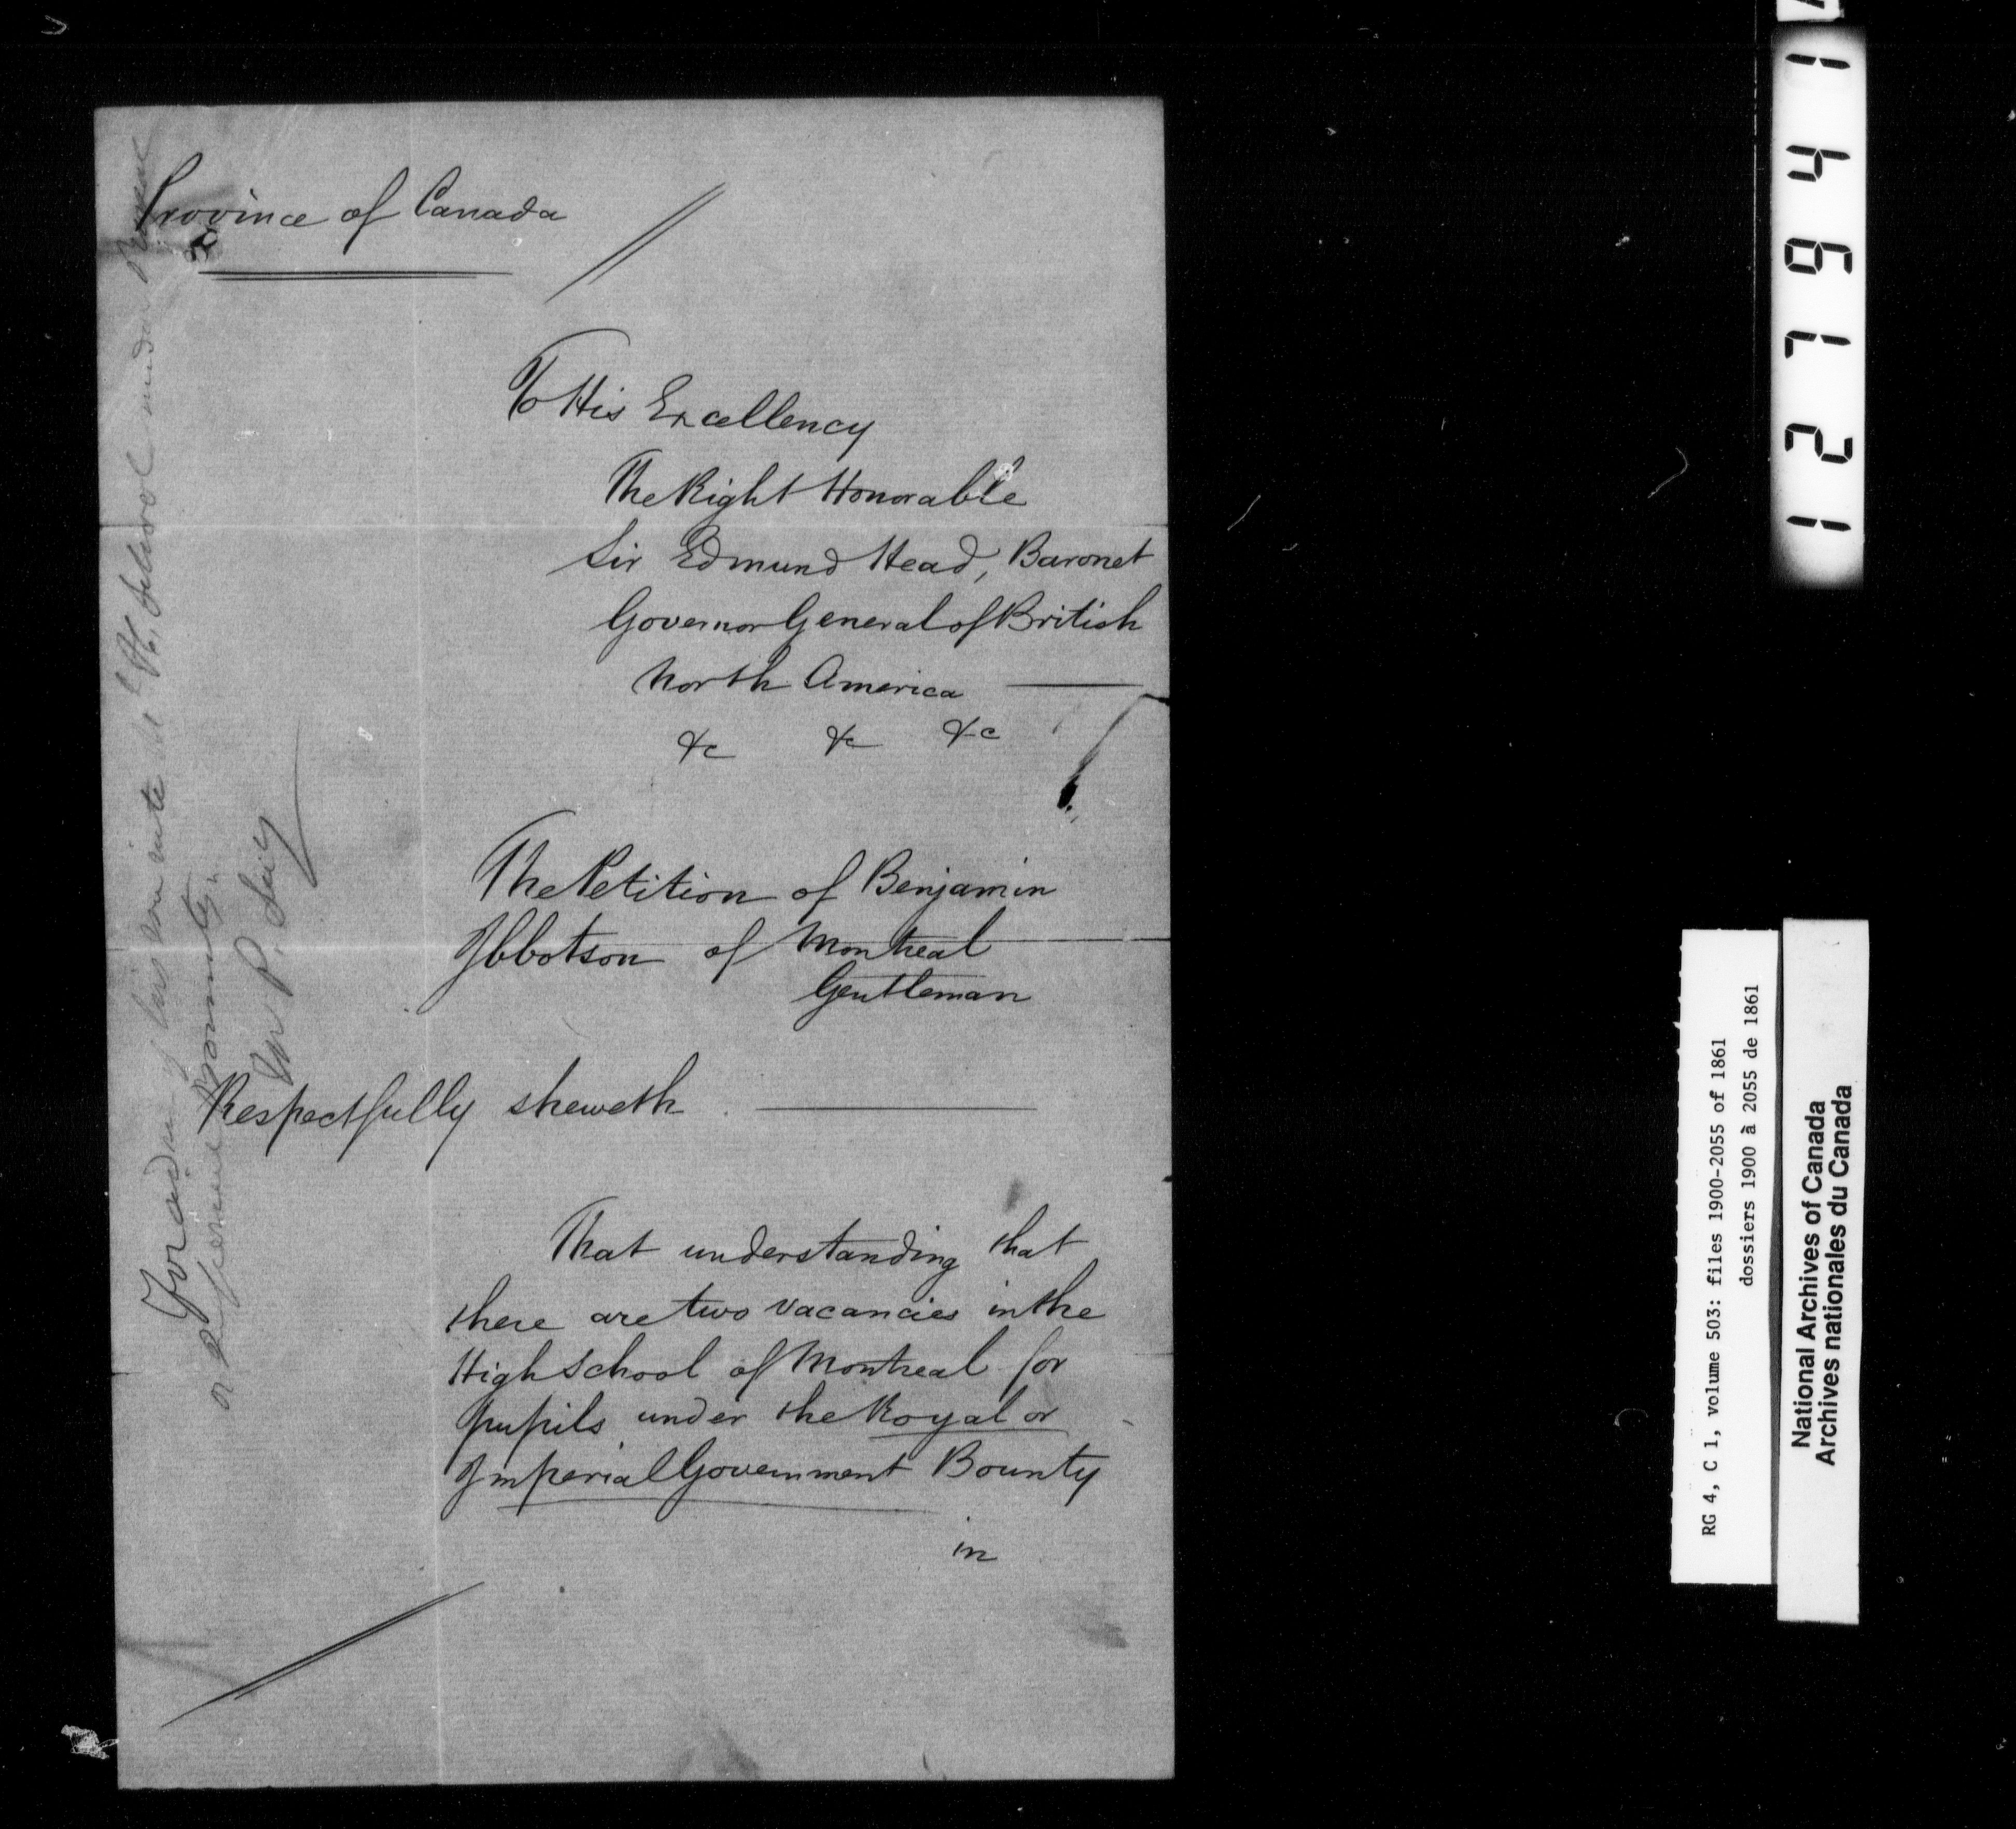 Province of Canada
To His Excellency
The Right Honorable
Sir Edmund Head, Baronet
Governor General of British
North America
&c &c &c
The Petition of Benjamin
Ibbotson of Montreal
Gentleman
Respectfully sheweth
That understanding that
there are two vacancies in the
High School of Montreal for
pupils under the Royal or
Imperial Government Bounty
in
For adm of his son into the H. School under Royal
or Imperial Bounty.
127941
RG 4, C 1, volume 503: files 1900-2055 of 1861
dossiers 1900 à 2055 de 1861
National Archives of Canada
Archives nationales du Canada